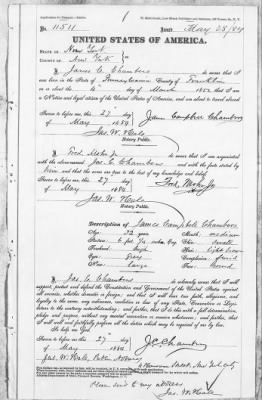 No. 11511 Issued May 28/84
UNITED STATES OF AMERICA.
STATE OF New York
COUNTY OF New York
I, James C. Chambers do swear that I
was born in the State of Pennsylvania County of Franklin
on or about the day of March 1852 that I am
a Native and loyal citizen of the United States of America, and am about to travel abroad
Sworn to before me, this 27 day
of May 1884 James Campbell Chambers
Jas. W. Hale
Notary Public.
I, Fred. Mohr Jr. do swear that I am acquainted
with the above-named Jas. C. Chambers and with the facts above stated by
him and that the same are true to the best of my knowledge and belief.
Sworn to before me, this 27 day
of May 1884 Fred. Mohr Jr
Jas. W. Hale
Notary Public.
Description of James Campbell Chambers
Age: 32
Mouth: medium
Stature: 6 feet
Chin: small
Forehead: high
Hair: light brown
Eyes: grey
Complexion: florid
Nose: large
Face: round
I, Jas. C. Chambers do solemnly swear that I will
support, protect and defend the Constitution and Government of the United States against
all enemies, whether domestic or foreign; and that I will bear true faith, allegiance, and
loyalty to the same, any ordinance, resolution or law of any State, Convention or Legis-
lature to the contrary notwithstanding; and further, that I do this with a full determination,
pledge and purpose, without any mental reservation or evasion whatsoever; and further, that
I will well and faithfully perform all the duties which may be required of me by law.
So help me God.
Sworn to before me, this 27 day
of May 1884 J C Chambers
Jas. W. Hale, Notary Public New York City
Please send to my address
Jas. W. Hale